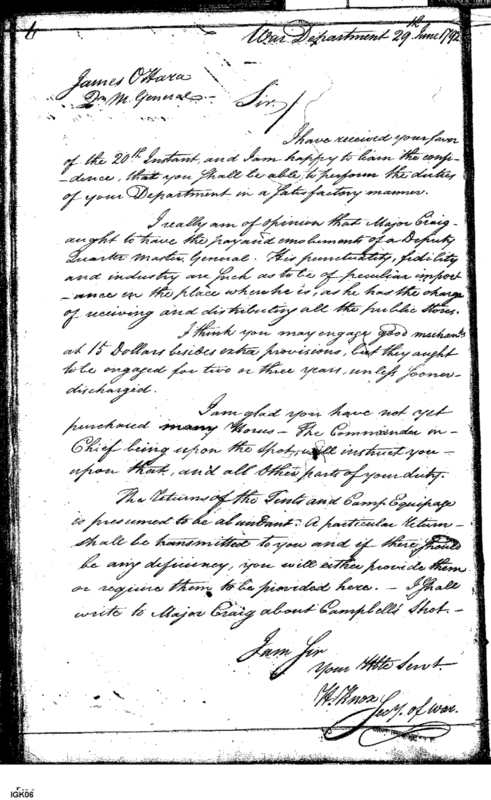 War Department 29th June 1792
James O'Hara
Qr M. General
Sir /
I have received your favor
of the 20th Instant, and I am happy to learn the confi-
-dence, that you shall be able to perform the duties
of your Department in a satisfactory manner.
I really am of opinion that Major Craig
ought to have the pay and emoluments of a Deputy
Quarter Master General. His punctuality, fidelity
and industry are such as to be of peculiar impor
-ance in the place where he is, as he has the charge
of receiving and distributing all the public Stores.
I think you may engage good mechan's
at 15 Dollars besides extra provisions, but they ought
to be engaged for two or three years, unless sooner
discharged.
I am glad you have not yet
purchased many Horses - The Commander in
Chief being upon the spot, will instruct you
upon that, and all other parts of your duty.
The Returns of the Tents and Camp Equipage
is presumed to be abundant. A particular return
shall be transmitted to you and if there should
be any deficiency, you will either provide them
or require them to be provided here. - I shall
write to Major Craig about Campbell's Shot -
I am Sir
Your Hble Servt.
H. Knox
Secy. of War.
IGK06